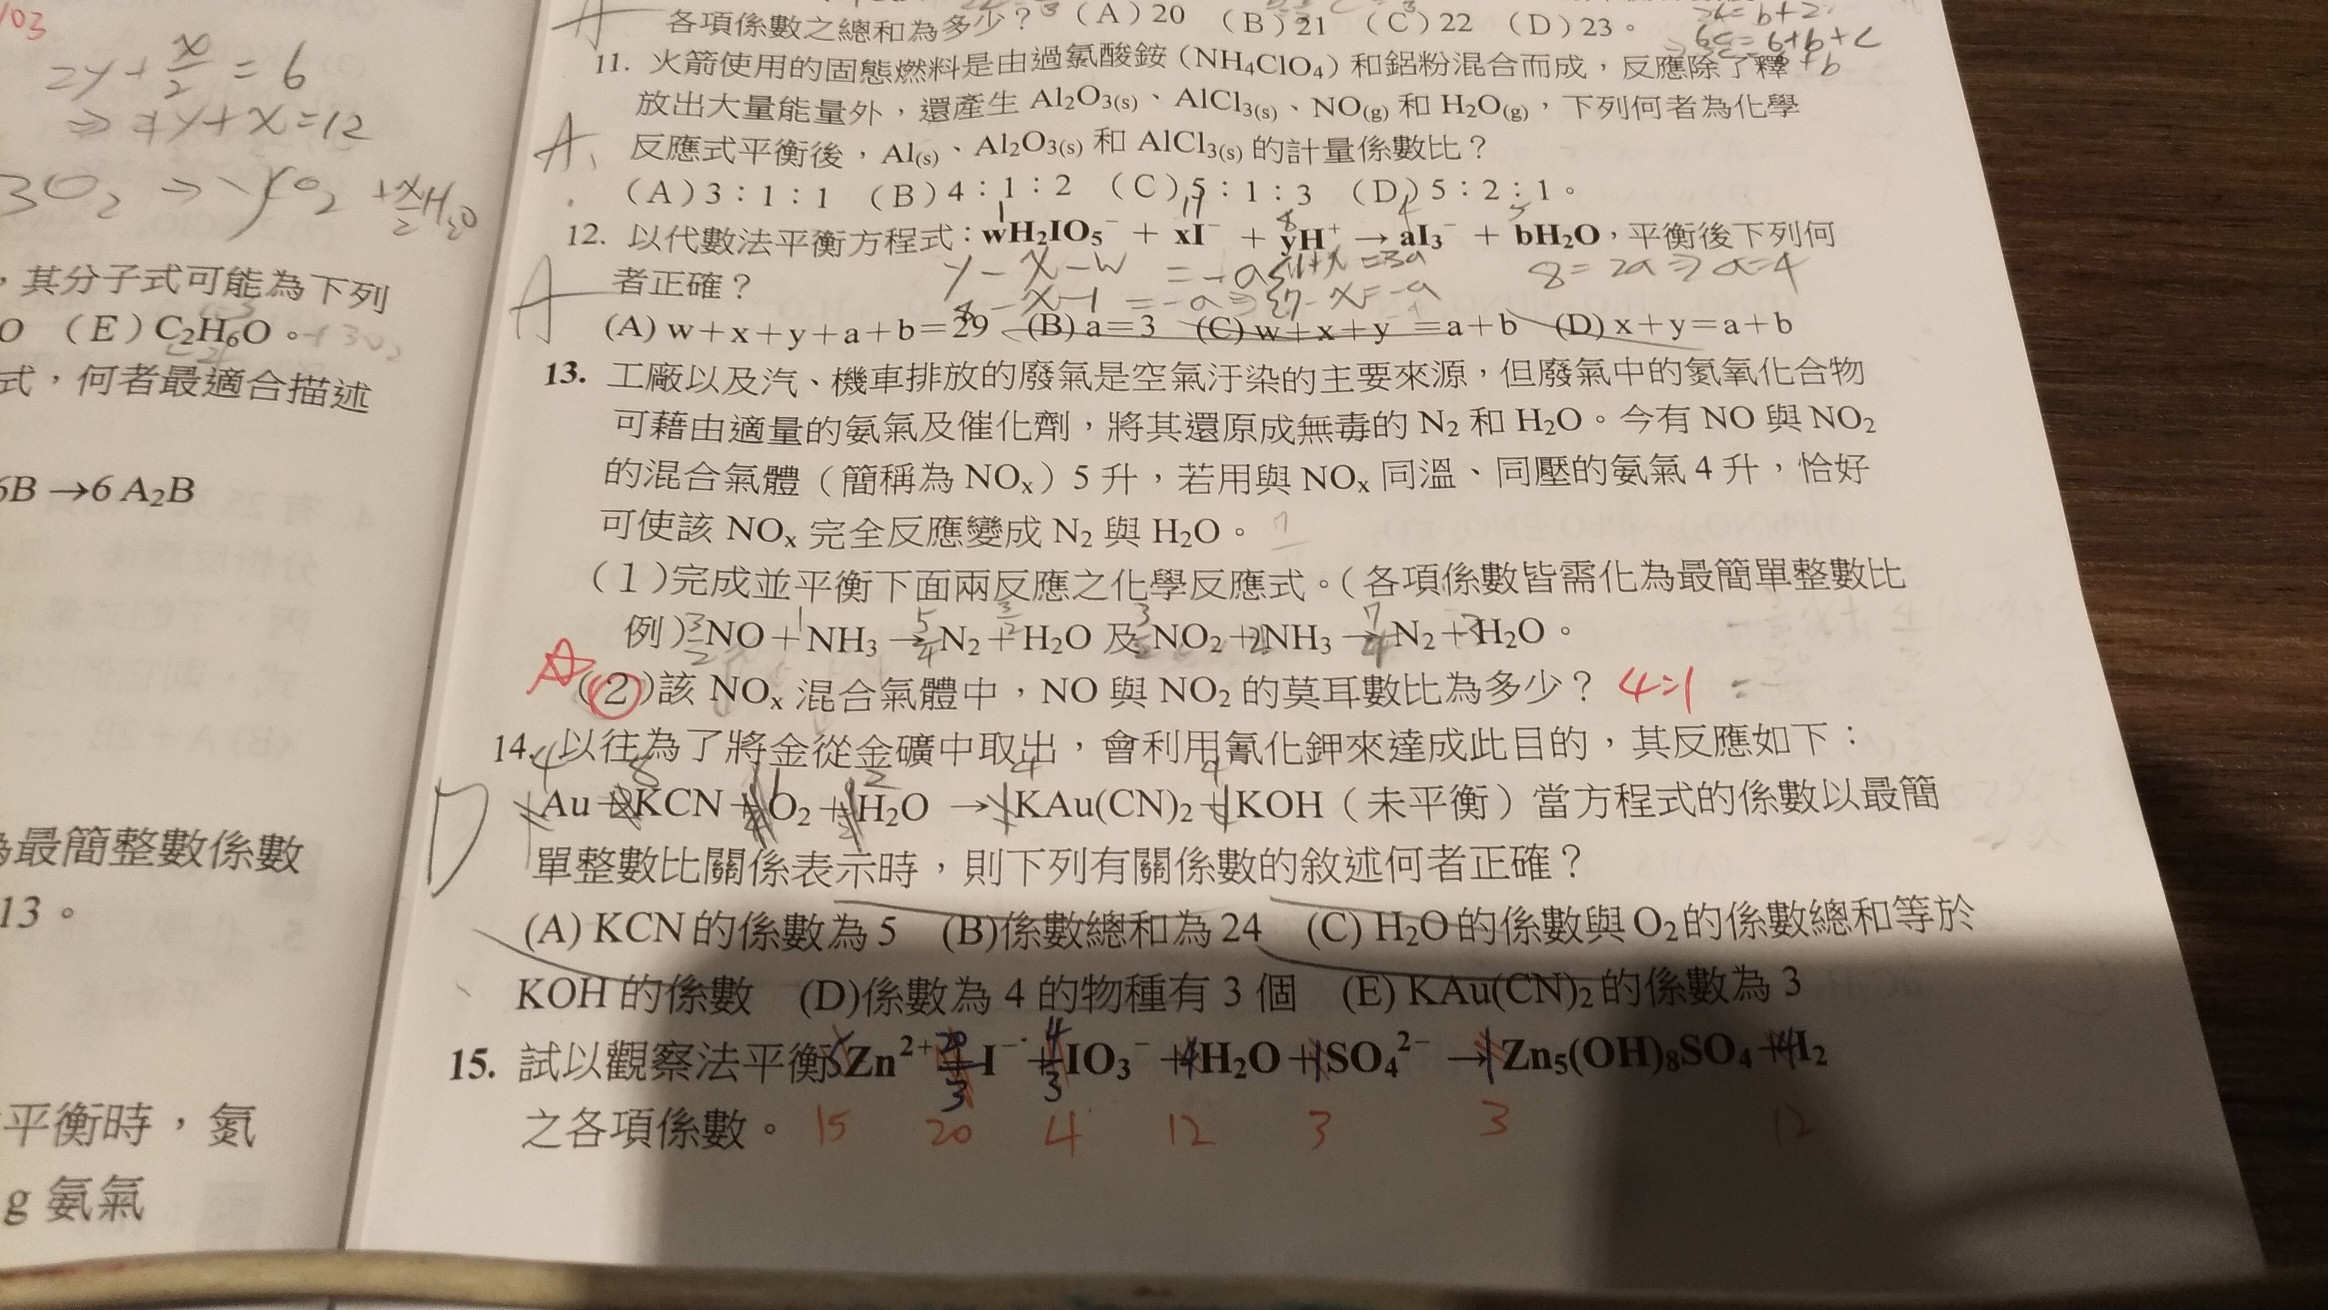 103
2y + x/2 = 6
⇒ 4y + x = 12
3O₂ → yO₂ + x/2 H₂O
,其分子式可能為下列
O (E) C₂H₆O。
式,何者最適合描述
6B →6 A₂B
為最簡整數係數
13。
平衡時,氮
g 氨氣
各項係數之總和為多少?(A)20 (B)21 (C)22 (D)23。
11. 火箭使用的固態燃料是由過氯酸銨(NH₄ClO₄)和鋁粉混合而成,反應除了釋
放出大量能量外,還產生 Al₂O₃(s)、AlCl₃(s)、NO(g) 和 H₂O(g),下列何者為化學
A 反應式平衡後,Al(s)、Al₂O₃(s) 和 AlCl₃(s) 的計量係數比?
(A)3:1:1 (B)4:1:2 (C)5:1:3 (D)5:2:1。
1 17 8 4 5
12. 以代數法平衡方程式:wH₂IO₅⁻ + xI⁻ + yH⁺ → aI₃⁻ + bH₂O,平衡後下列何
者正確? y - x - w = -a 8 = 2a ⇒ a = 4
A
(A) w+x+y+a+b=29 (B) a=3 (C) w+x+y =a+b (D) x+y=a+b
13. 工廠以及汽、機車排放的廢氣是空氣汙染的主要來源,但廢氣中的氮氧化合物
可藉由適量的氨氣及催化劑,將其還原成無毒的 N₂ 和 H₂O。今有 NO 與 NO₂
的混合氣體(簡稱為 NOₓ)5 升,若用與 NOₓ 同溫、同壓的氨氣 4 升,恰好
可使該 NOₓ 完全反應變成 N₂ 與 H₂O。
(1)完成並平衡下面兩反應之化學反應式。(各項係數皆需化為最簡單整數比
例) 3/2 NO + 1 NH₃ → 5/4 N₂ + 3/2 H₂O 及 3/2 NO₂ + 2 NH₃ → 7/4 N₂ + 3 H₂O。
(2)該 NOₓ 混合氣體中,NO 與 NO₂ 的莫耳數比為多少? 4:1
14. 以往為了將金從金礦中取出,會利用氰化鉀來達成此目的,其反應如下:
4 8 1 2 4 4
D Au + KCN + O₂ + H₂O → KAu(CN)₂ + KOH(未平衡)當方程式的係數以最簡
單整數比關係表示時,則下列有關係數的敘述何者正確?
(A) KCN 的係數為 5 (B)係數總和為 24 (C) H₂O 的係數與 O₂ 的係數總和等於
KOH 的係數 (D)係數為 4 的物種有 3 個 (E) KAu(CN)₂ 的係數為 3
15. 試以觀察法平衡 5 Zn²⁺ + 20/3 I⁻ + 4/3 IO₃⁻ + 4 H₂O + 1 SO₄²⁻ → 1 Zn₅(OH)₈SO₄ + 4 I₂
之各項係數。 15 20 4 12 3 3 12